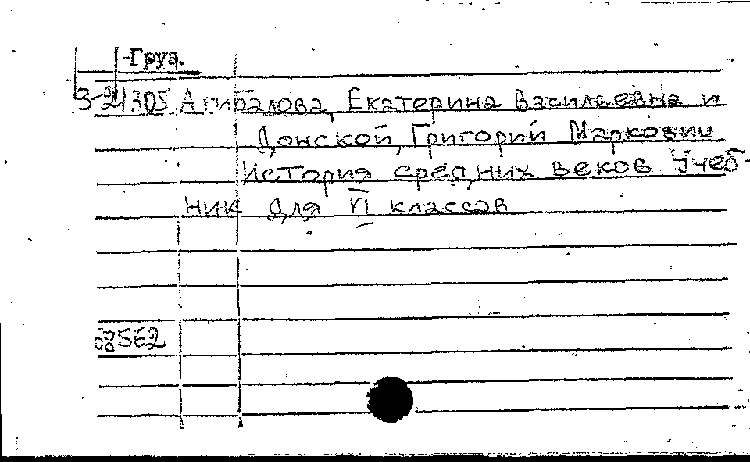 Груз.
3-21305 Агибалова, Екатерина Васильевна и
Донской, Григорий Маркович
История средних веков. Учеб-
ник для VI классов
68562